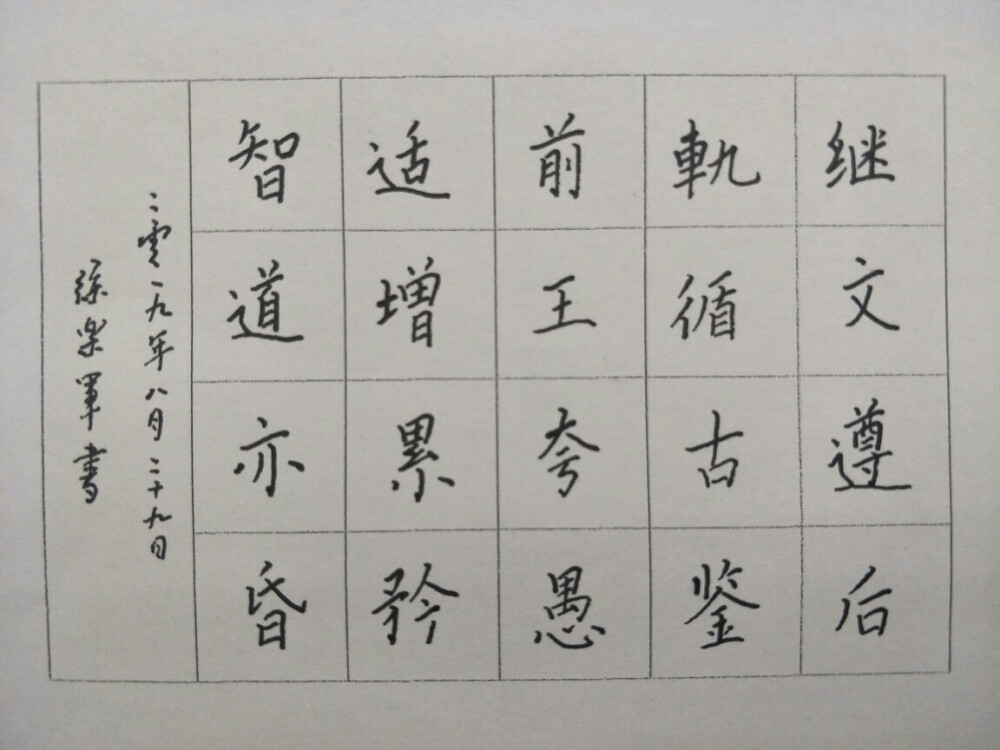 继文遵后
軌循古鉴
前王夸愚
适增累矜
智道亦昏
二零一九年八月二十九日
徐楽軍書